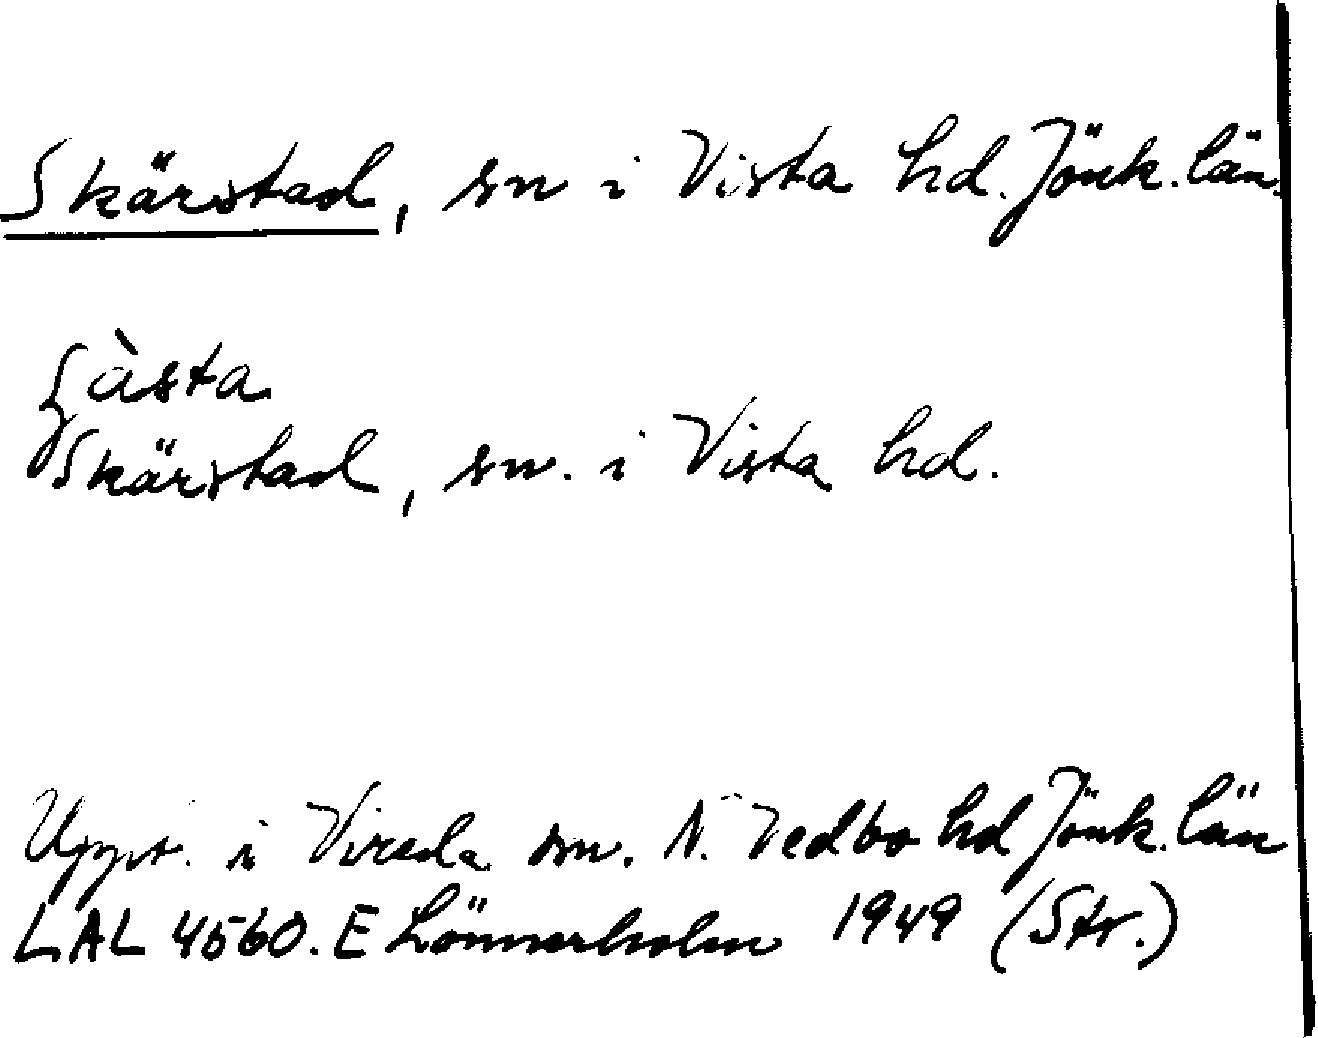 Skärstad, sn i Vista hd. Jönk. län.
ʃàsta
Skärstad, sn. i Vista hd.
Uppt. i Vireda sn. N. Vedbo hd Jönk. län
LAL 4560. E Lönnerholm 1949 (Str.)